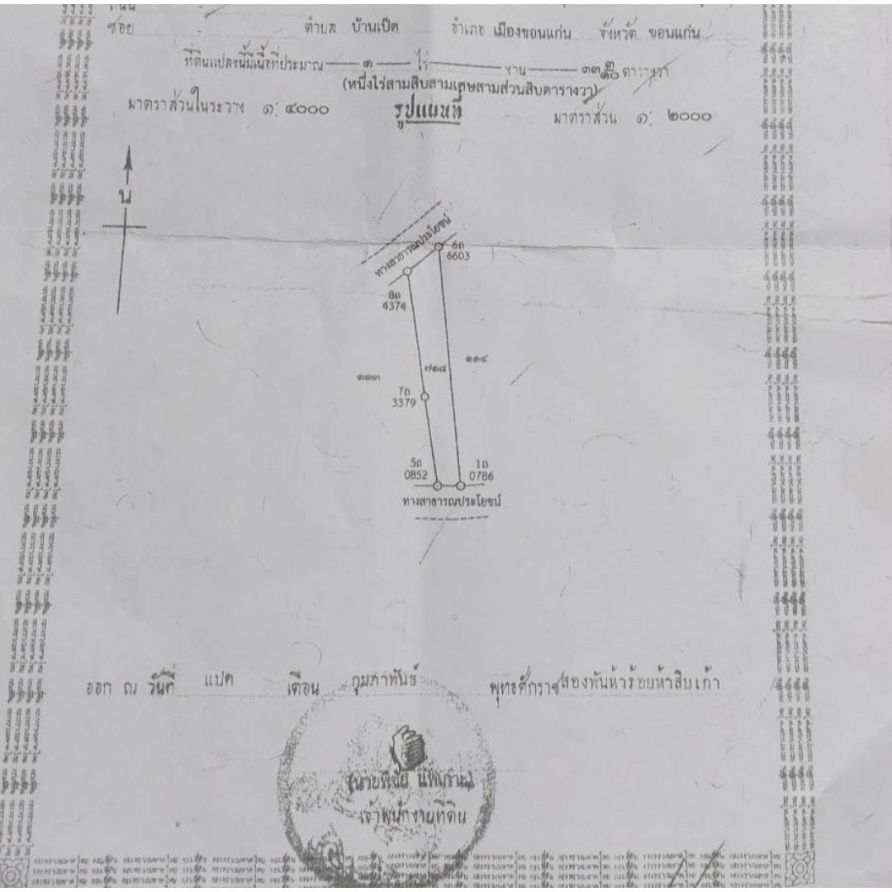 ซอย ตำบล บ้านเป็ด อำเภอ เมืองขอนแก่น จังหวัด ขอนแก่น
ที่ดินแปลงนี้มีเนื้อที่ประมาณ ๑ ไร่ งาน ๓๓ ๓/๑๐ ตารางวา
(หนึ่งไร่สามสิบสามเศษสามส่วนสิบตารางวา)
มาตราส่วนในระวาง ๑: ๔๐๐๐ รูปแผนที่ มาตราส่วน ๑: ๒๐๐๐
น
ทางสาธารณประโยชน์
6ถ
6603
8ถ
4374
๑๓๔
๗๓๘
7ถ
3379
5ถ 1ถ
0852 0786
ทางสาธารณประโยชน์
ออก ณ วันที่ แปด เดือน กุมภาพันธ์ พุทธศักราช สองพันห้าร้อยห้าสิบเก้า
เจ้าพนักงานที่ดิน